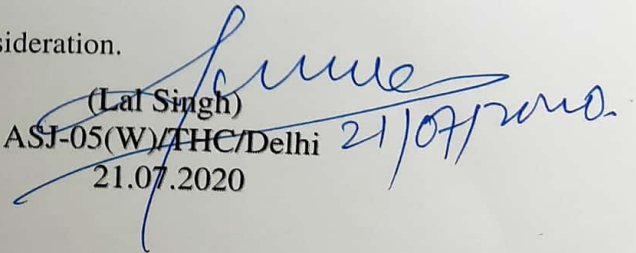 sideration.
(Lal Singh)
ASJ-05(W)/THC/Delhi 21/07/2020.
21.07.2020